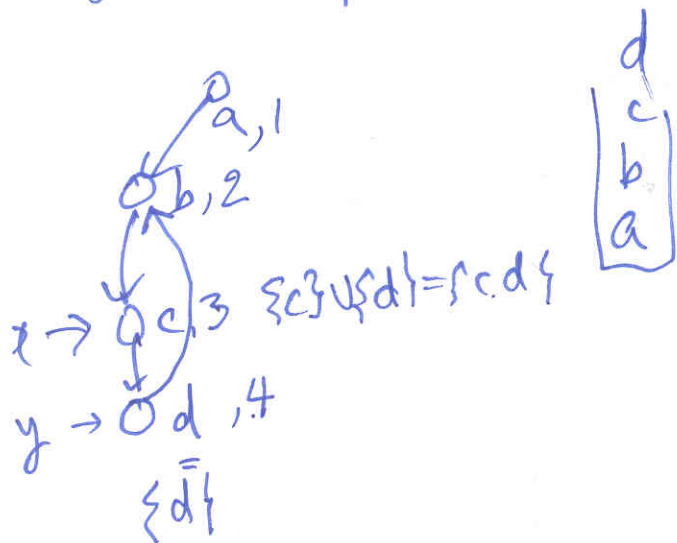 a, 1
b, 2
x → c, 3 {c} ∪ {d} = {c.d}
y → d, 4
=
{d}
d
c
b
a